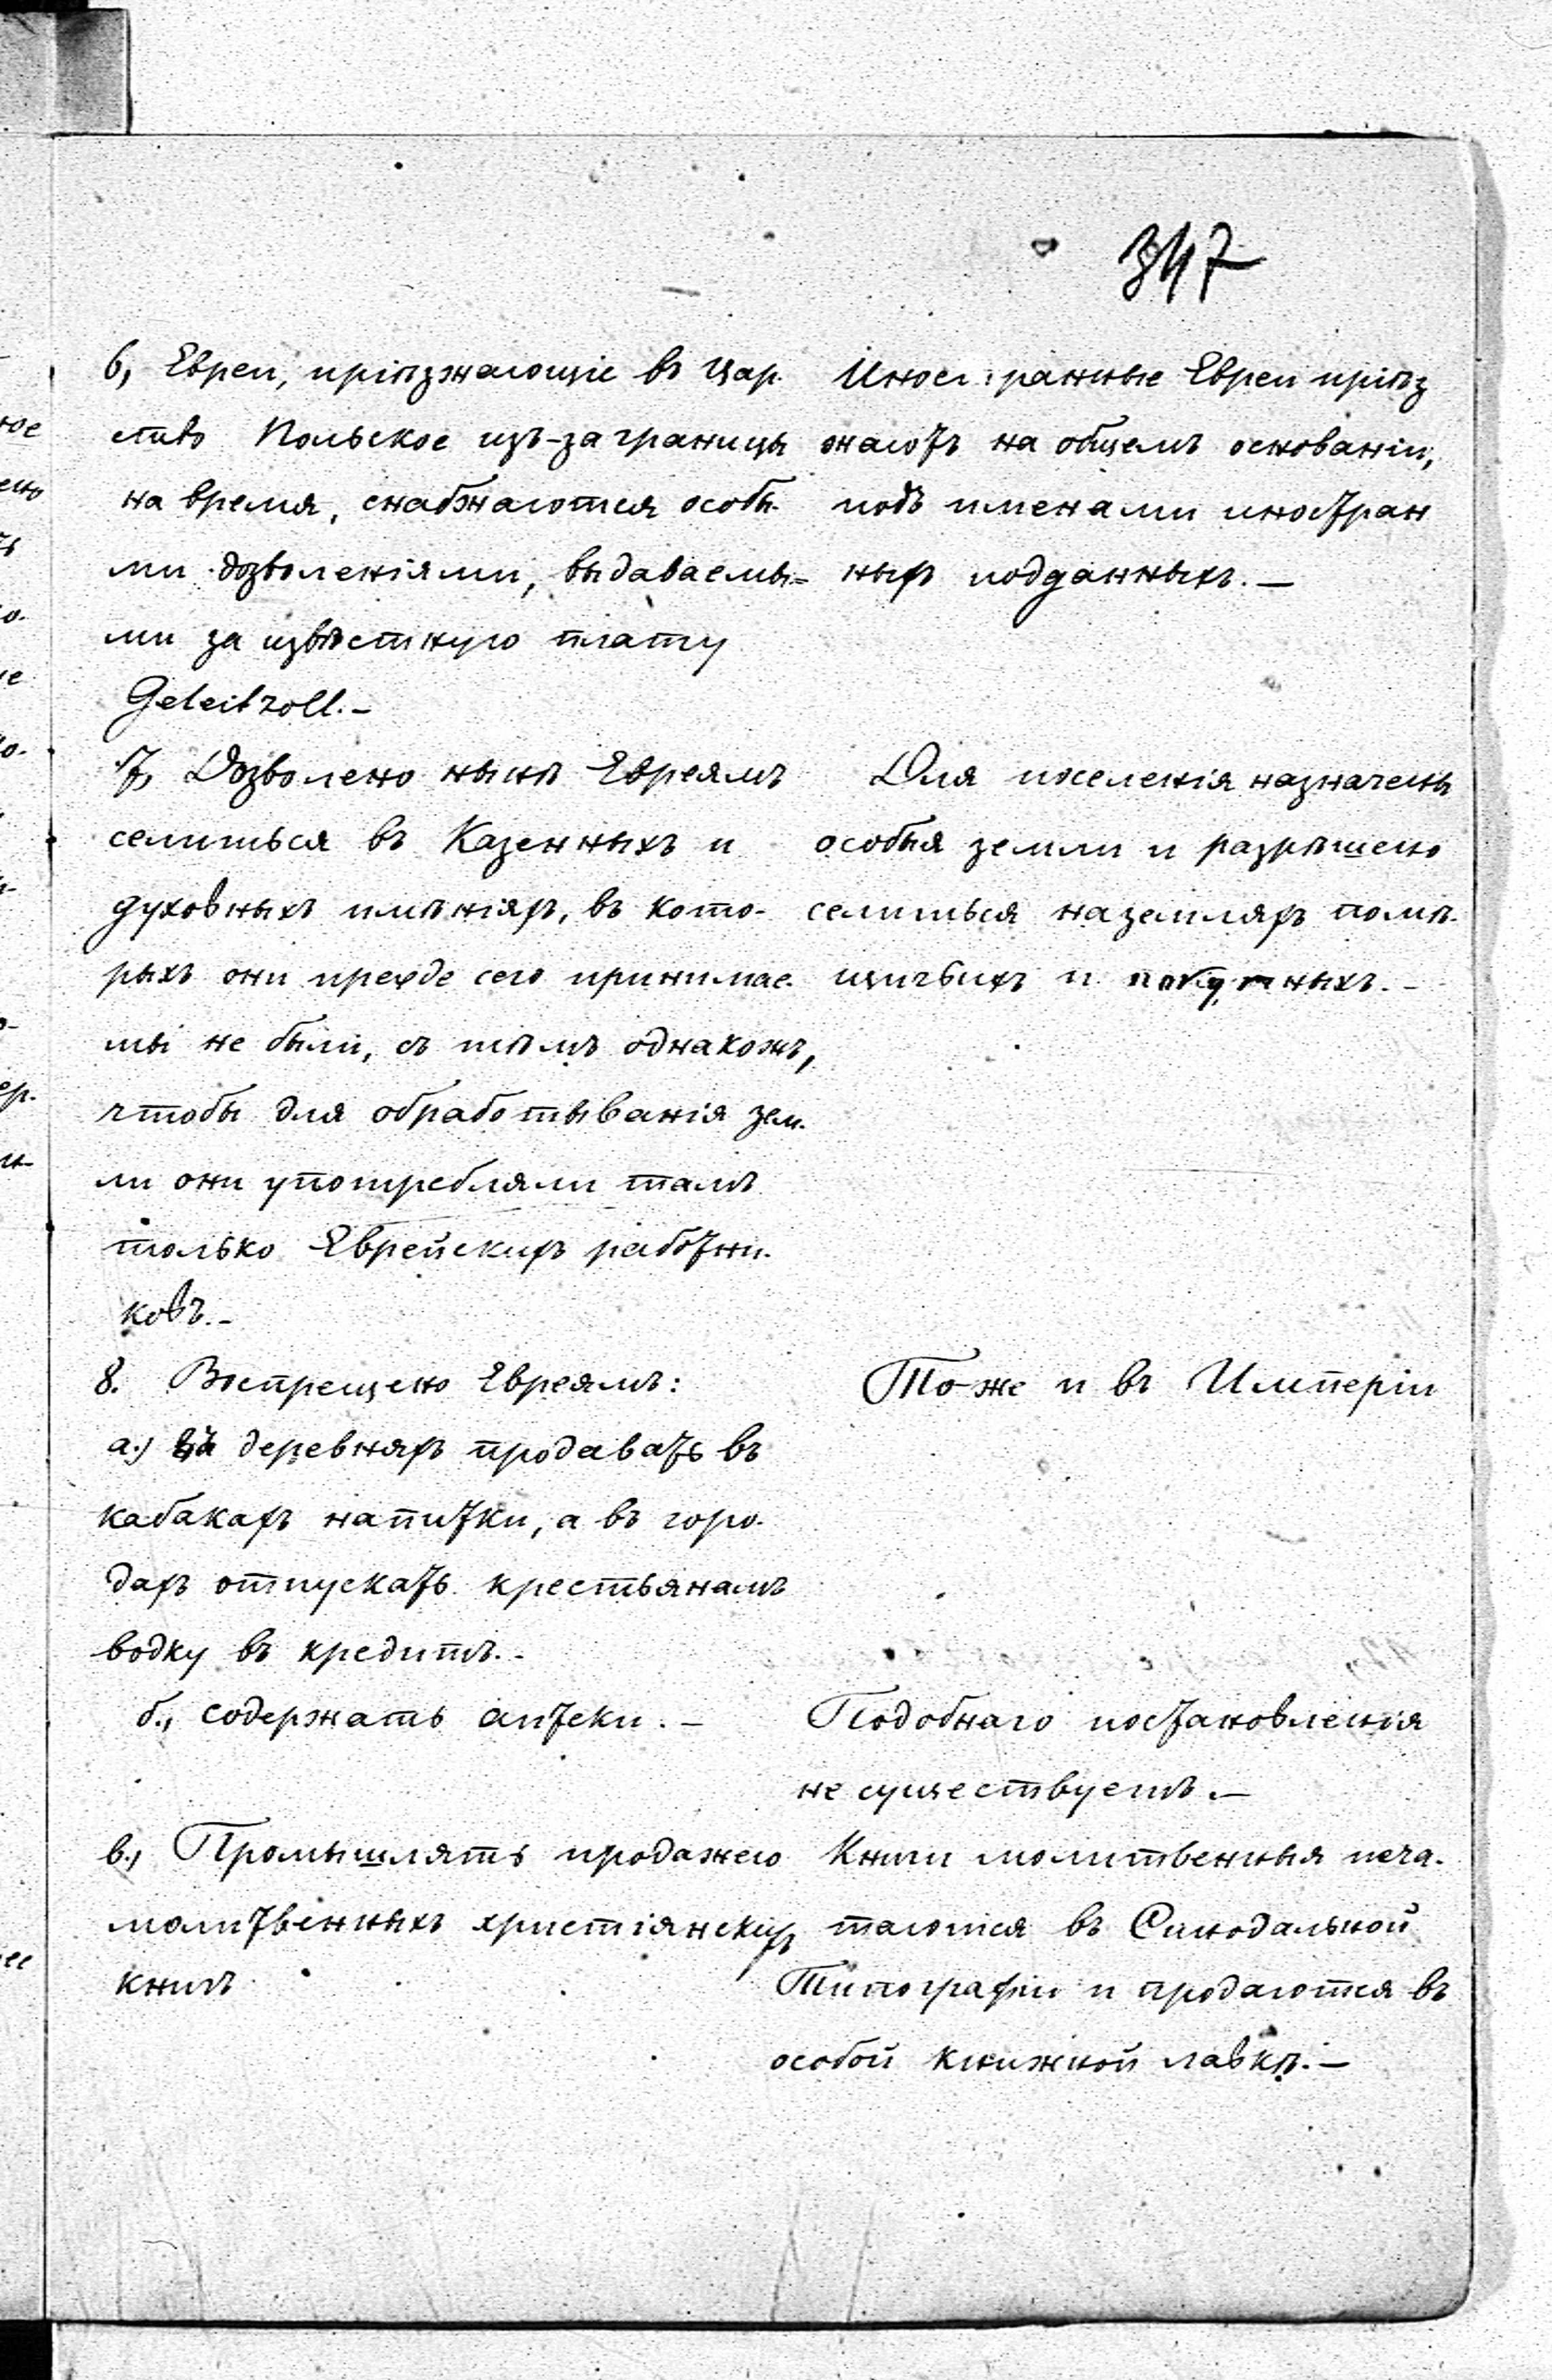 347
6, Евреи, пріѣзжающіе въ Цар-
ство Польское изъ-за границы
на время, снабжаются особы-
ми дозволеніями, выдаваемы=
ми за извѣстную плату
Geleitzoll.-
7, Дозволено нынѣ Евреямъ
селиться въ Казенныхъ и
духовныхъ имѣніяхъ, въ кото-
рыхъ они прежде сего принимае-
мы не были, съ тѣмъ однакожъ,
чтобы для обработыванія зем-
ли они употребляли тамъ
только Еврейскихъ работни-
ковъ.-
8. Воспрещено Евреямъ:
а.) въ деревняхъ продавать въ
кабакахъ напитки, а въ горо-
дахъ отпускать крестьянамъ
водку въ кредитъ.-
б., содержать аптеки.-
в., Промышлять продажею
молитвенныхъ христіянскихъ
книгъ
Иностранные Евреи пріѣз
жаютъ на общемъ основаніи,
подъ именами иностран
ныхъ подданныхъ.-
Для поселенія назначены
особыя земли и разрѣшено
селиться на земляхъ помѣ-
щичьихъ и
То-же и въ Имперіи
Подобнаго постановленія
не существуетъ.-
Книги молитвенныя печа-
таются въ Синодальной
Типографіи и продаются въ
особой книжной лавкѣ.-